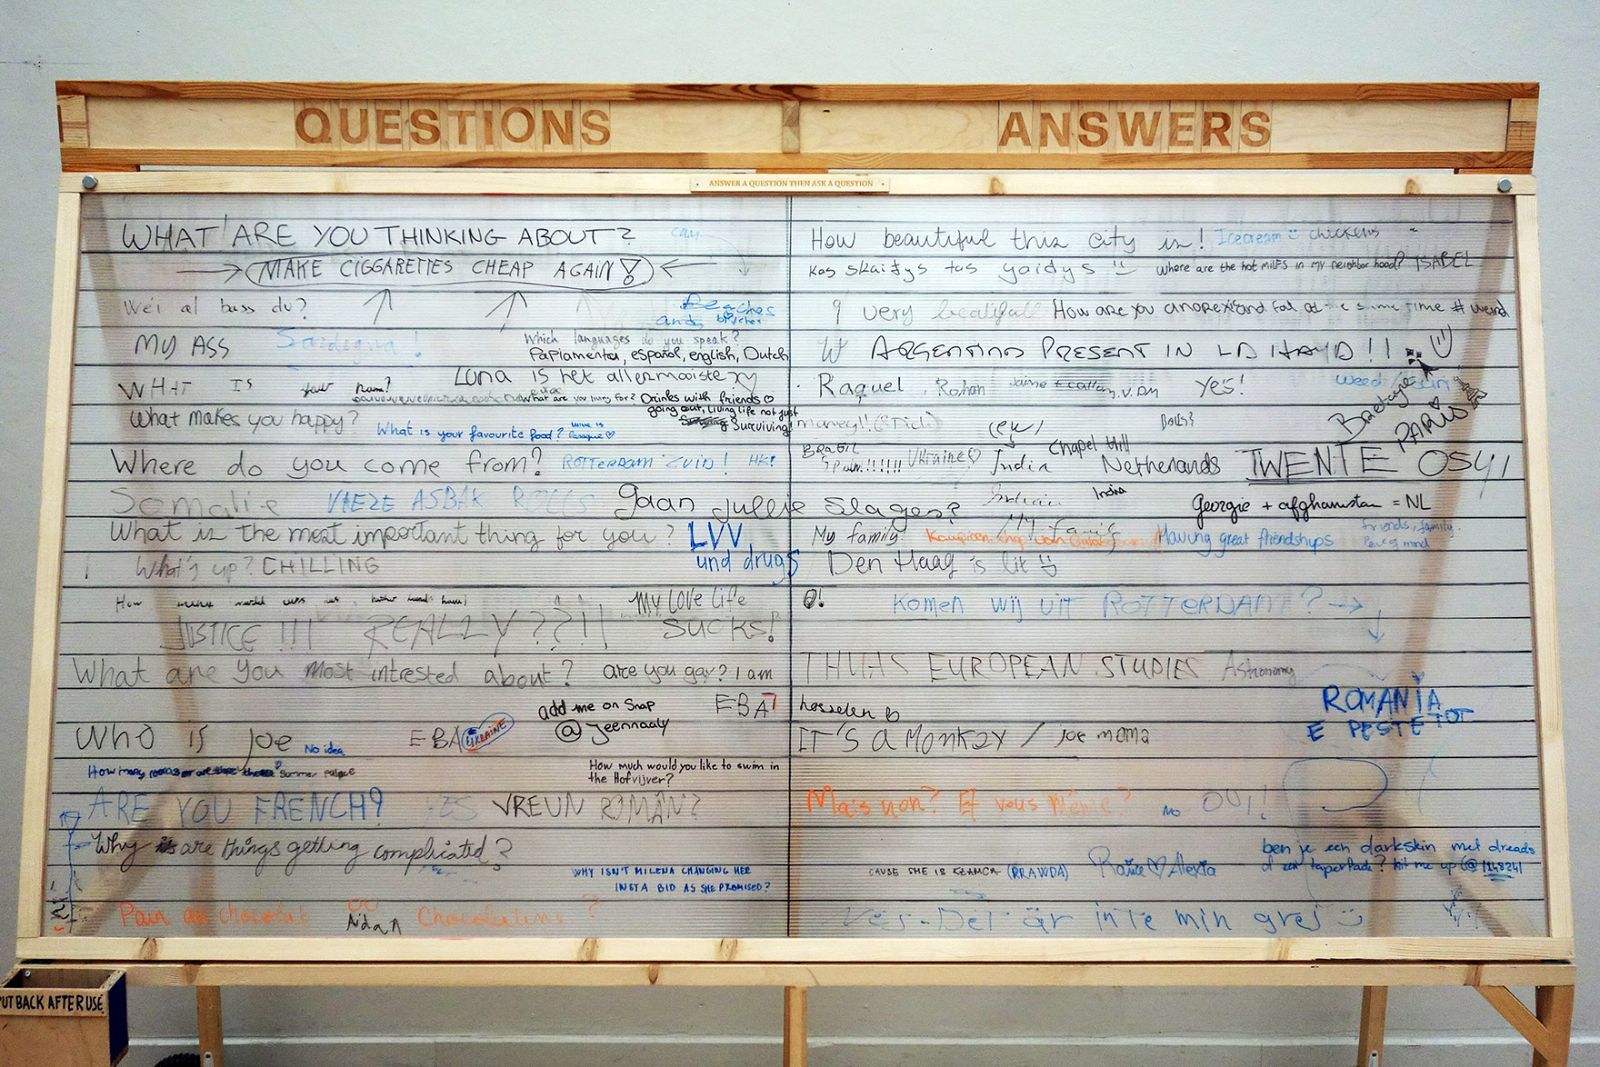 QUESTIONS ANSWERS
ANSWER A QUESTION THEN ASK A QUESTION
WHAT ARE YOU THINKING ABOUT?
How beautiful this city is! Icecream chickens
MAKE CIGGARETTES CHEAP AGAIN!
kas skaidys tas gaidys Where are the hot milfs in my neighborhood? ISABEL
Wéi al bass du?
Beaches
and
very beatifull How are you anorexic and fat at the same time # weird
MY ASS Sardegna!
Which languages do you speak?
Papiamento, español, english, Dutch
ARGENTINO PRESENT IN LA HAYA!!
WHAT IS your name? Luna is het allermooiste xx
what are you living for? Drinks with friends
going out, Living life not just
Surviving!
Raquel Rohan Yes! weed
PARIS
What makes you happy?
What is your favourite food?
Where do you come from? ROTTERDAM ZUID! HK!
BRAZIL Ukraine India Chapel Hill Netherlands TWENTE
Somalie VIEZE ASBAK ROLLS gaan jullie slages?
India Georgie + afghanistan = NL
What is the most important thing for you? LVV
und drugs
My family Having great friendships friends, family.
Peace of mind
What's up? CHILLING
Den Haag is lit
How
MY LOVE LIFE
SUCKS!
O! KOMEN WIJ UIT ROTTERDAM?
JUSTICE!!! REALLY??!!
What are you most intrested about? are you gay? I am
THUAS EUROPEAN STUDIES Astronomy
add me on Snap
@Jeennaaly
EBA
hosselen
ROMANIA
E PESTE TOT
Who is joe No idea EBA UKRAINE
IT'S a MONKEY / joe mama
How many rooms are summer palace
How much would you like to swim in
the Hofvijver?
ARE YOU FRENCH? YES VREUN ROMÂN?
Mais non? Et vous même? No OUI!
Why are things getting complicated?
WHY ISN'T MILENA CHANGING HER
INSTA BIO AS SHE PROMISED?
CAUSE SHE IS KLAMCA (PRAWDA)
Alexia
ben je een darkskin met dreads
of een taperfade? hit me up
Pain au chocolat ou Chocolatine?
Aidan
Yes. Det är inte min grej
PUT BACK AFTER USE